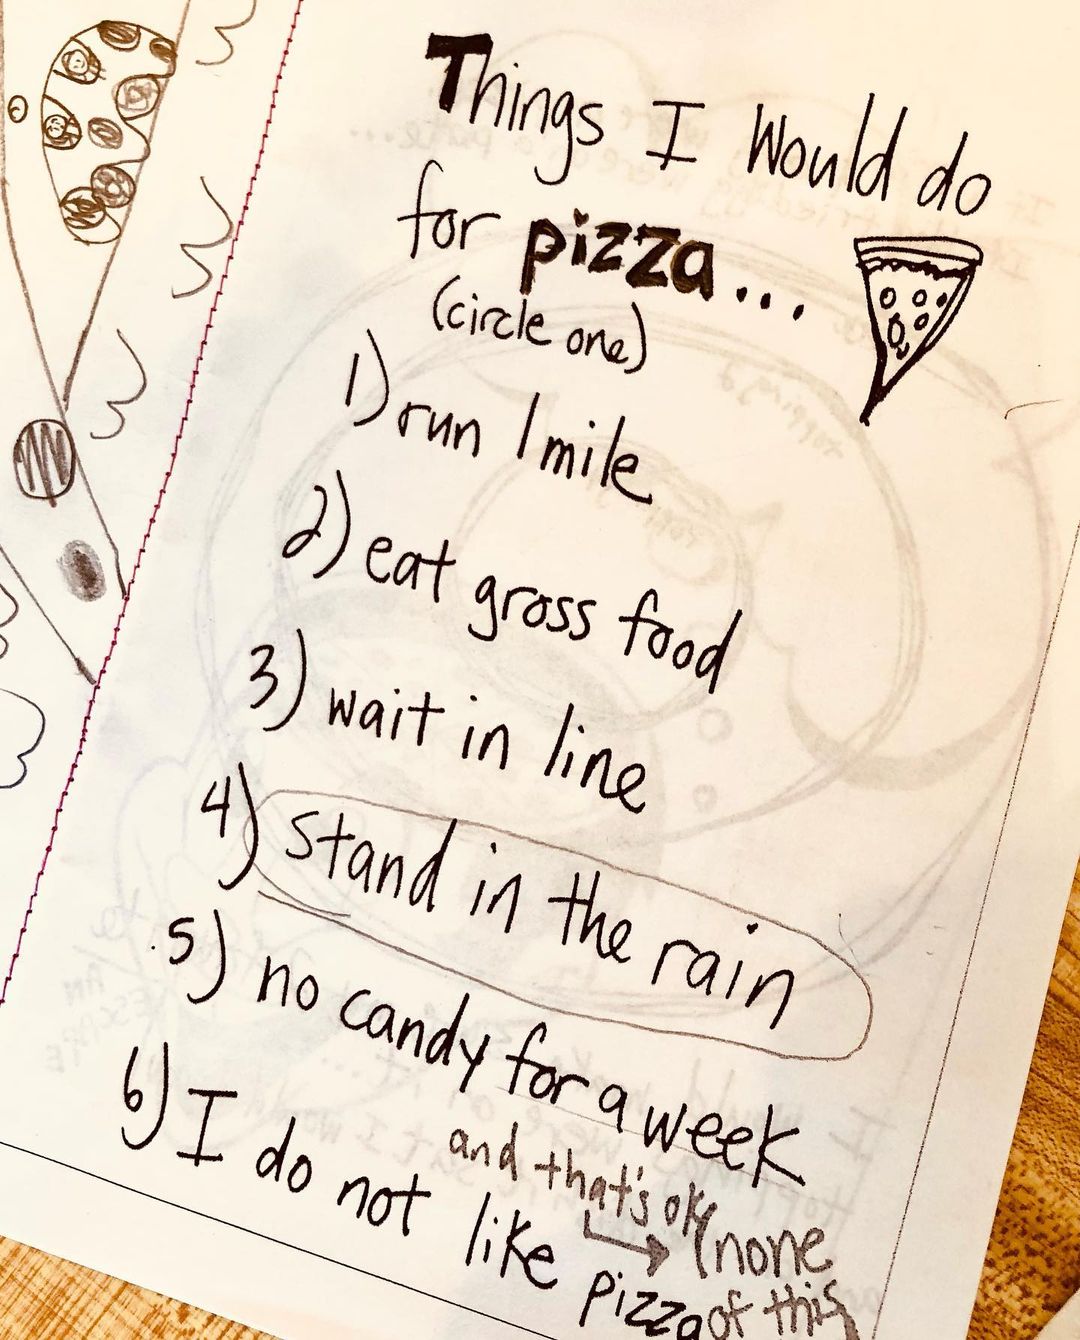 Things I Would do
for pizza...
(circle one)
1) run 1 mile
2) eat gross food
3) wait in line
4) stand in the rain
5) no candy for a week
6) I do not like pizza
and that's oky
(none
of this